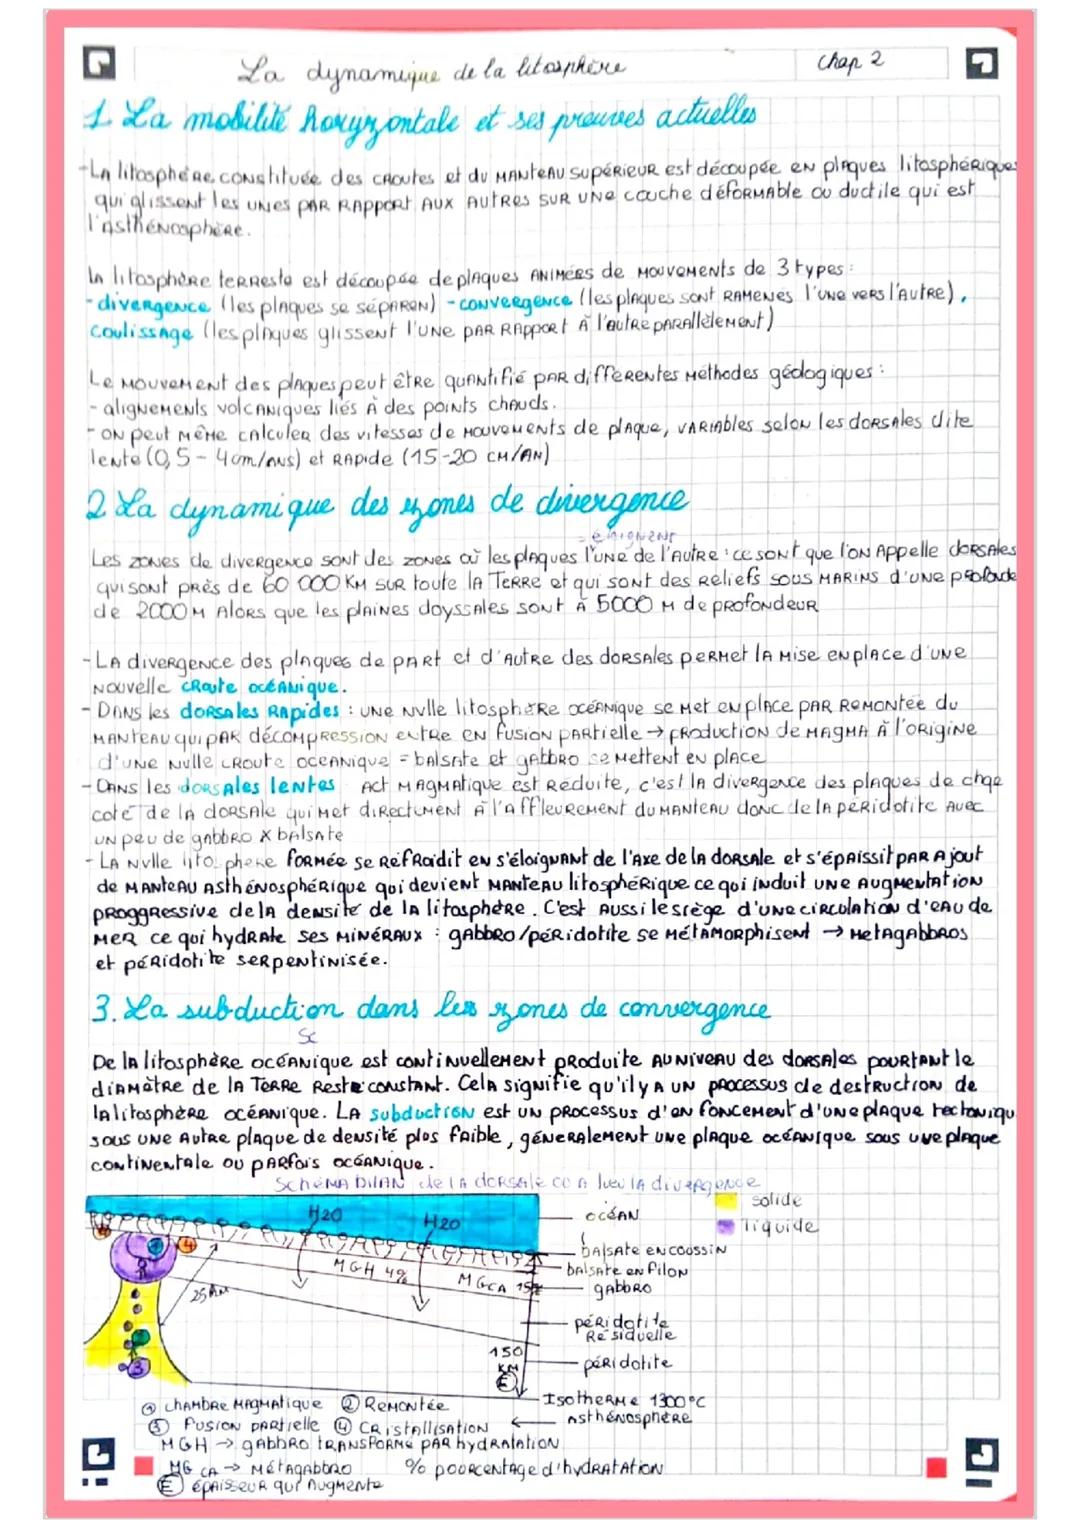 La dynamique de la litosphère
chap 2
1. La mobilité horyzontale et ses preuves actuelles
- La litosphère constituée des croutes et du manteau supérieur est découpée en plaques litosphériques
qui glissent les unes par rapport aux autres sur une couche déformable ou ductile qui est
l'asthénosphère.
La litosphère terreste est découpée de plaques animées de mouvements de 3 types :
- divergence (les plaques se séparen) - convergence (les plaques sont ramenes l'une vers l'autre),
coulissage (les plaques glissent l'une par rapport à l'autre parallèlement)
Le mouvement des plaques peut être quantifié par différentes méthodes géologiques :
- alignements volcaniques liés à des points chauds.
- on peut même calculer des vitesses de mouvements de plaque, variables selon les dorsales dite
lente (0,5 - 4cm/ans) et rapide (15-20 cm/an)
2 La dynamique des zones de divergence
= éloignent
Les zones de divergence sont des zones où les plaques l'une de l'autre : ce sont que l'on appelle dorsales
qui sont près de 60 000 km sur toute la Terre et qui sont des reliefs sous marins d'une profonde
de 2000 m alors que les plaines doyssales sont à 5000 m de profondeur
- La divergence des plaques de part et d'autre des dorsales permet la mise en place d'une
nouvelle croute océanique.
- Dans les dorsales rapides : une nvlle litosphère océanique se met en place par remontée du
manteau qui par décompression entre en fusion partielle → production de magma à l'origine
d'une nvlle croute oceanique = balsate et gabbro se mettent en place
- Dans les dorsales lentes act magmatique est réduite, c'est la divergence des plaques de chqe
coté de la dorsale qui met directement à l'affleurement du manteau donc de la péridotite avec
un peu de gabbro x balsate
- La nvlle litosphere formée se refroidit en s'éloignant de l'axe de la dorsale et s'épaissit par ajout
de manteau asthénosphérique qui devient manteau litosphérique ce qui induit une augmentation
proggressive de la densité de la litosphère. C'est aussi le siège d'une circulation d'eau de
mer ce qui hydrate ses minéraux : gabbro/péridotite se métamorphisent → métagabbros
et péridotite serpentinisée.
3. La subduction dans les zones de convergence
Sc
De la litosphère océanique est continuellement produite au niveau des dorsales pourtant le
diamètre de la Terre reste constant. Cela signifie qu'il y a un processus de destruction de
la litosphère océanique. La subduction est un processus d'enfoncement d'une plaque tectoniqu
sous une autre plaque de densité plus faible, généralement une plaque océanique sous une plaque
continentale ou parfois océanique.
Schéma bilan de la dorsale co a lieu la divergence
solide
liquide
H2O
H2O
océan
balsate en coussin
balsate en filon
gabbro
MGH 4%
MGCA 15%
25 km
péridotite
Résiduelle
150
km
E
péridotite
Isotherme 1300°C
asthénosphère
① chambre magmatique ② Remontée
③ Fusion partielle ④ Cristallisation
MGH → gabbro transformé par hydratation
MG CA → Métagabbro % pourcentage d'hydratation
Ⓔ épaisseur qui augmente